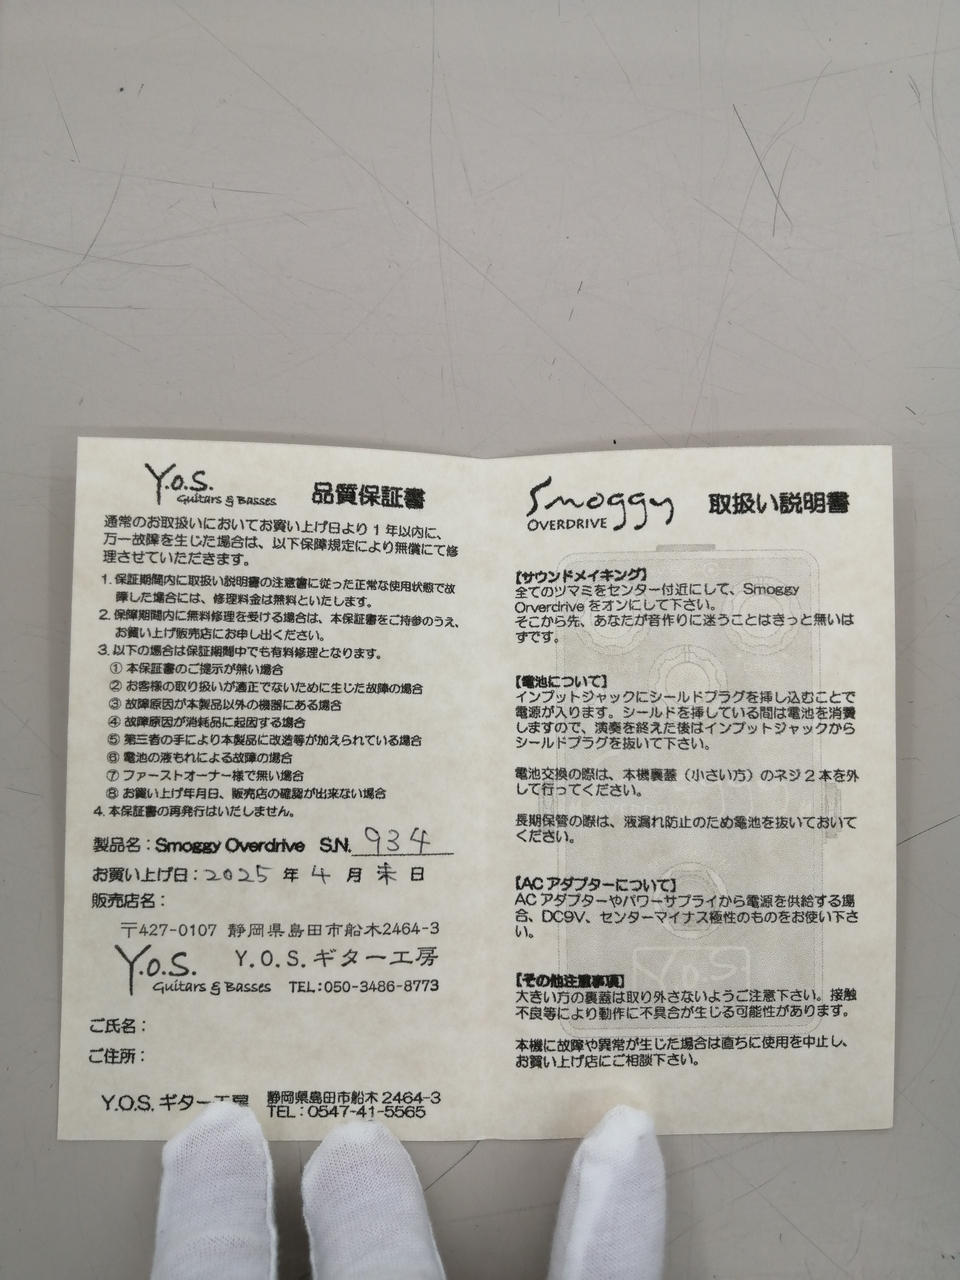 Y.o.S.
Guitars & Basses
品質保証書
通常のお取扱いにおいてお買い上げ日より1年以内に、
万一故障を生じた場合は、以下保障規定により無償にて修
理させていただきます。
1. 保証期間内に取扱い説明書の注意書に従った正常な使用状態で故
障した場合には、修理料金は無料といたします。
2. 保障期間内に無料修理を受ける場合は、本保証書をご持参のうえ、
お買い上げ販売店にお申し出ください。
3. 以下の場合は保証期間中でも有料修理となります。
① 本保証書のご提示が無い場合
② お客様の取り扱いが適正でないために生じた故障の場合
③ 故障原因が本製品以外の機器にある場合
④ 故障原因が消耗品に起因する場合
⑤ 第三者の手により本製品に改造等が加えられている場合
⑥ 電池の液もれによる故障の場合
⑦ ファーストオーナー様で無い場合
⑧ お買い上げ年月日、販売店の確認が出来ない場合
4. 本保証書の再発行はいたしません。
製品名：Smoggy Overdrive S.N. 934
お買い上げ日：2025 年 4 月 末 日
販売店名：
〒427-0107 静岡県島田市船木2464-3
Y.o.S. Y.O.S.ギター工房
Guitars & Basses TEL:050-3486-8773
ご氏名：
ご住所：
Y.O.S.ギター工房 静岡県島田市船木2464-3
TEL：0547-41-5565
Smoggy
OVERDRIVE
取扱い説明書
【サウンドメイキング】
全てのツマミをセンター付近にして、Smoggy
Orverdrive をオンにして下さい。
そこから先、あなたが音作りに迷うことはきっと無いは
ずです。
【電池について】
インプットジャックにシールドプラグを挿し込むことで
電源が入ります。シールドを挿している間は電池を消費
しますので、演奏を終えた後はインプットジャックから
シールドプラグを抜いて下さい。
電池交換の際は、本機裏蓋（小さい方）のネジ2本を外
して行ってください。
長期保管の際は、液漏れ防止のため電池を抜いておいて
ください。
【ACアダプターについて】
ACアダプターやパワーサプライから電源を供給する場
合、DC9V、センターマイナス極性のものをお使い下さ
い。
Y.o.S
【その他注意事項】
大きい方の裏蓋は取り外さないようご注意下さい。接触
不良等により動作に不具合が生じる可能性があります。
本機に故障や異常が生じた場合は直ちに使用を中止し、
お買い上げ店にご相談下さい。